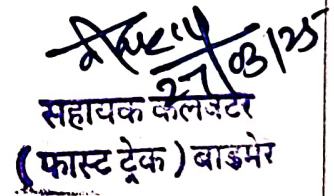 27/03/25
सहायक कलक्टर
(फास्ट ट्रेक) बाडमेर